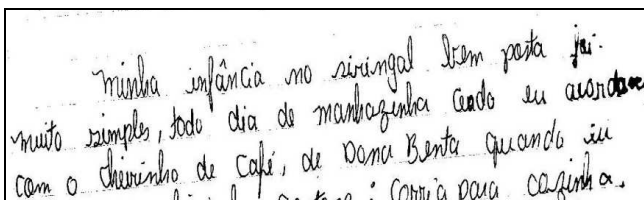 minha infância no siringal bem posta foi
muito simples, todo dia de manhazinha cedo eu acordava
com o cheirinho de café, de Dona Benta quando eu
corria para cozinha.